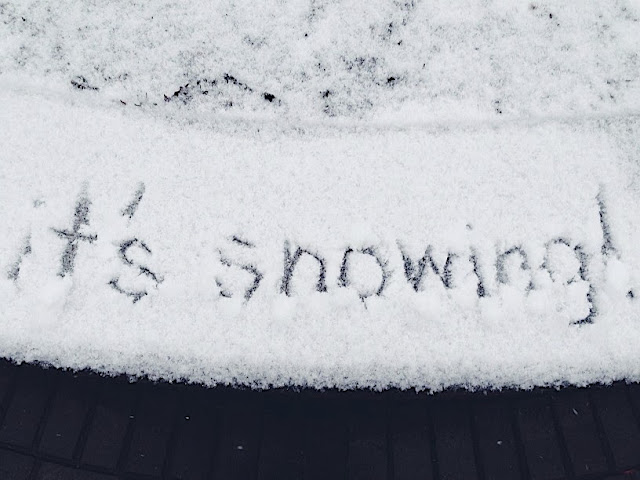 it's snowing!